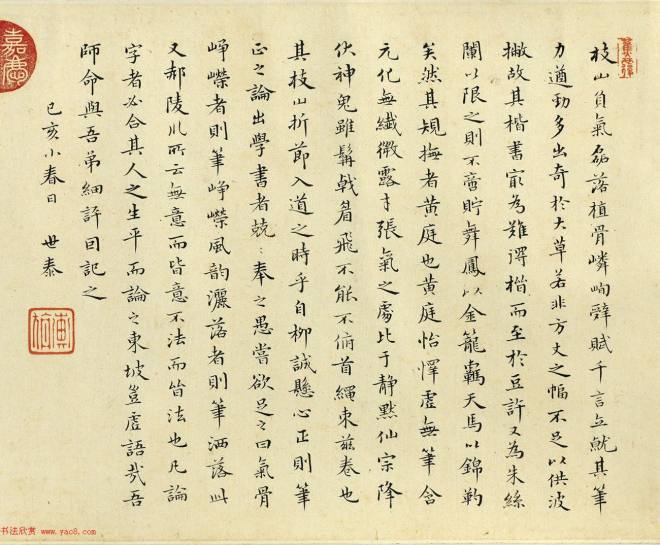 枝山負氣磊落植骨嶙峋辭賦千言立就其筆
力遒勁多出奇於大草若非方丈之幅不足以供波
撇故其楷書寂為難得楷而至於豆許又為朱絲
闌以限之則不啻貯舞鳳以金籠羈天馬以錦勒
矣然其規撫者黄庭也黄庭怡懌虛無筆含
元化無纖微露才張氣之處比于静黙仙宗降
伏神鬼雖髯戟眉飛不能不俯首繩束茲卷也
其枝山折節入道之時乎自柳誠懸心正則筆
正之論出學書者兢〻奉之愚嘗欲足之曰氣骨
崢嶸者則筆崢嶸風韵灑落者則筆洒落此
又郝陵川所云無意而皆意不法而皆法也凡論
字者必合其人之生平而論之東坡豈虛語哉吾
師命與吾弟細評回記之
己亥小春日 世泰
嘉慶
书法欣赏 www.yac8.com